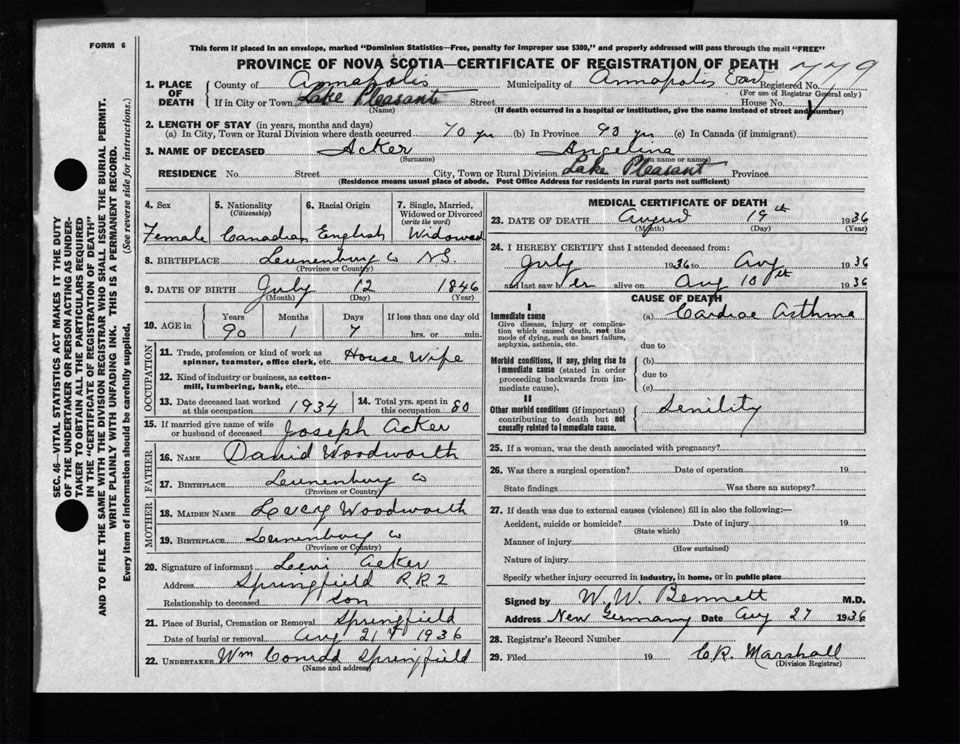 FORM 6
This form if placed in an envelope, marked "Dominion Statistics—Free, penalty for improper use $300," and properly addressed will pass through the mail "FREE"
PROVINCE OF NOVA SCOTIA—CERTIFICATE OF REGISTRATION OF DEATH
779
1. PLACE OF DEATH
County of Annapolis Municipality of Annapolis East Registered No.
(For use of Registrar General only)
If in City or Town Lake Pleasant Street House No.
(Name) (If death occurred in a hospital or institution, give the name instead of street and number)
2. LENGTH OF STAY (in years, months and days)
(a) In City, Town or Rural Division where death occurred 70 yrs (b) In Province 93 yrs (c) In Canada (if immigrant)
3. NAME OF DECEASED Acker Angelina
(Surname) name or names)
RESIDENCE No. Street City, Town or Rural Division Lake Pleasant Province
(Residence means usual place of abode. Post Office Address for residents in rural parts not sufficient)
4. Sex
Female
5. Nationality
(Citizenship)
Canadian
6. Racial Origin
English
7. Single, Married, Widowed or Divorced
(write the word)
Widowed
8. BIRTHPLACE Lunenburg Co N.S.
(Province or Country)
9. DATE OF BIRTH July 12 1846
(Month) (Day) (Year)
10. AGE in
Years Months Days If less than one day old
90 1 7 hrs. or min.
OCCUPATION
11. Trade, profession or kind of work as spinner, teamster, office clerk, etc. House Wife
12. Kind of industry or business, as cotton-mill, lumbering, bank, etc.
13. Date deceased last worked at this occupation 1934
14. Total yrs. spent in this occupation 80
15. If married give name of wife or husband of deceased Joseph Acker
FATHER
16. NAME David Woodworth
17. BIRTHPLACE Lunenburg Co
(Province or Country)
MOTHER
18. MAIDEN NAME Lucy Woodworth
19. BIRTHPLACE Lunenburg Co
(Province or Country)
20. Signature of informant Levi Acker
Address Springfield R.R 2
Relationship to deceased Son
21. Place of Burial, Cremation or Removal Springfield
Date of burial or removal Aug 21st 1936
22. UNDERTAKER Wm Conrad Springfield
(Name and address)
MEDICAL CERTIFICATE OF DEATH
23. DATE OF DEATH August 19th 1936
(Month) (Day) (Year)
24. I HEREBY CERTIFY that I attended deceased from:
July 1936 to Aug 1936
and last saw her alive on Aug 10th 1936
CAUSE OF DEATH
I
Immediate cause
Give disease, injury or complication which caused death, not the mode of dying, such as heart failure, asphyxia, asthenia, etc.
(a) Cardiac Asthma
due to
Morbid conditions, if any, giving rise to immediate cause (stated in order proceeding backwards from immediate cause).
(b)
due to
(c)
II
Other morbid conditions (if important) contributing to death but not causally related to immediate cause.
Senility
25. If a woman, was the death associated with pregnancy?
26. Was there a surgical operation? Date of operation 19
State findings Was there an autopsy?
27. If death was due to external causes (violence) fill in also the following:—
Accident, suicide or homicide? Date of injury 19
(State which)
Manner of injury
(How sustained)
Nature of injury
Specify whether injury occurred in industry, in home, or in public place
Signed by W. W. Bennett M.D.
Address New Germany Date Aug 27 1936
28. Registrar's Record Number
29. Filed 19 C.R. Marshall
(Division Registrar)
SEC. 46—VITAL STATISTICS ACT MAKES IT THE DUTY
OF THE UNDERTAKER OR PERSON ACTING AS UNDER-
TAKER TO OBTAIN ALL THE PARTICULARS REQUIRED
IN THE "CERTIFICATE OF REGISTRATION OF DEATH"
AND TO FILE THE SAME WITH THE DIVISION REGISTRAR WHO SHALL ISSUE THE BURIAL PERMIT.
WRITE PLAINLY WITH UNFADING INK. THIS IS A PERMANENT RECORD.
Every item of information should be carefully supplied. (See reverse side for instructions.)